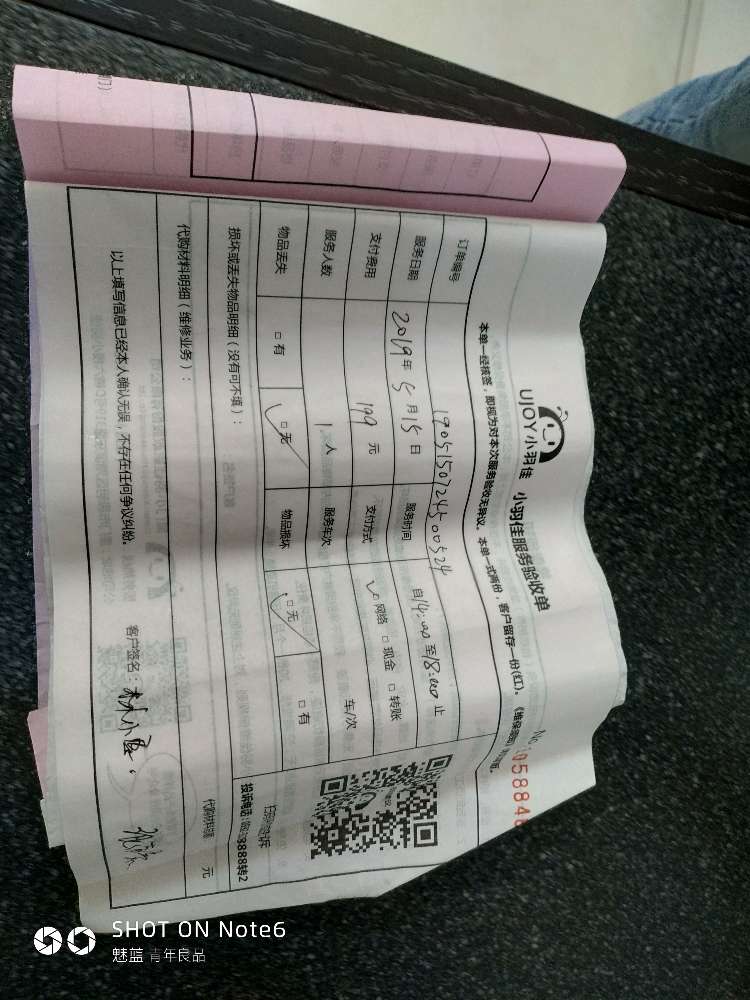 UJOY小羽佳 小羽佳服务验收单
No. 058846
本单一经核签，即视为对本次服务验收无异议。 本单一式两份，客户留存一份(红)。
订单编号 1905150724500524
服务日期 2019年5月15日 服务时间 自14:00至18:00止
支付费用 199元 支付方式 ✓□网络 □现金 □转账
服务人数 1人 服务车次 车/次
物品丢失 □有 ☑无 物品损坏 ☑无 □有
损坏或丢失物品明细（没有可不填）：
扫码投诉
投诉电话: 8888转2
代购材料明细（维修业务）： 元
以上填写信息已经本人确认无误，不存在任何争议纠纷。 客户签名：
SHOT ON Note6
魅蓝 青年良品